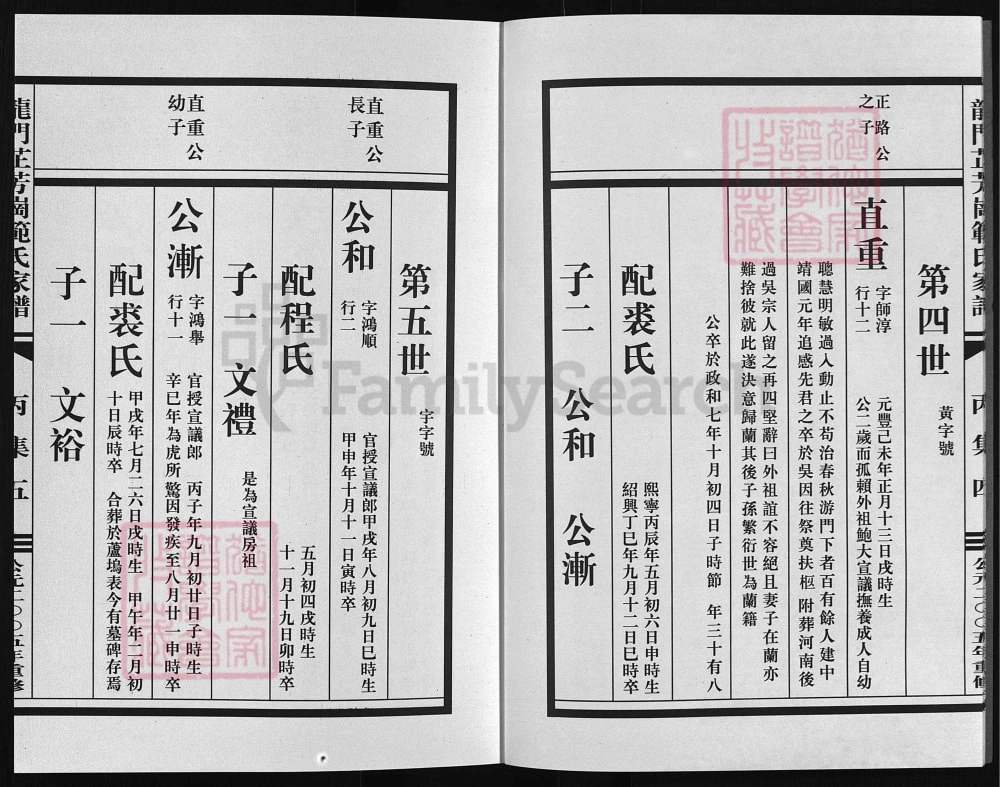 第四世
黃字號
正路公
之子
直重
字師淳
行十二
元豐己未年正月十三日戌時生
公二歲而孤賴外祖鮑大宣議撫養成人自幼
聰慧明敏過人動止不苟治春秋游門下者百有餘人建中
靖國元年追感先君之卒於吳因往祭奠扶柩附葬河南後
過吳宗人留之再四堅辭曰外祖誼不容絕且妻子在蘭亦
難捨彼就此遂決意歸蘭其後子孫繁衍世為蘭籍
公卒於政和七年十月初四日子時節 年三十有八
配裘氏
熙寧丙辰年五月初六日申時生
紹興丁巳年九月十二日巳時卒
子二 公和 公漸
第五世
宇字號
直重公
長子
公和
字鴻順
行二
官授宣議郎甲戌年八月初九日巳時生
甲申年十月十一日寅時卒
配程氏
五月初四戌時生
十一月十九日卯時卒
子一 文禮
是為宣議房祖
直重公
幼子
公漸
字鴻舉
行十一
官授宣議郎 丙子年九月初廿日子時生
辛巳年為虎所驚因發疾至八月廿一申時卒
配裘氏
甲戌年七月二六日戌時生 甲午年二月初
十日辰時卒 合葬於蘆塢表今有墓碑存焉
子一 文裕
龍門芷芳崗範氏家譜
丙集
五
公元二〇〇五年重修
FamilySearch